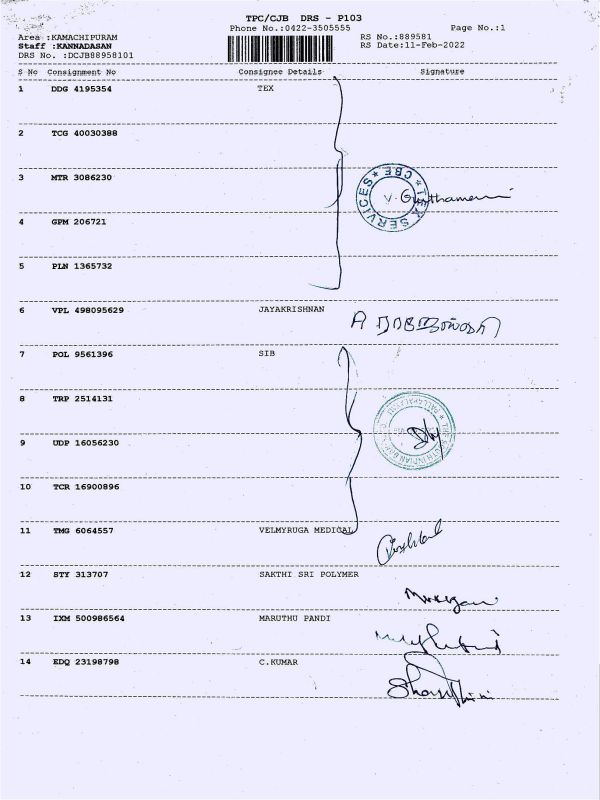 TPC/CJB DRS - P103
Phone No.:0422-3505555 Page No.:1
Area :KAMACHIPURAM RS No.:889581
Staff :KANNADASAN RS Date:11-Feb-2022
DRS No. :DCJB88958101
S No Consignment No Consignee Details Signature
1 DDG 4195354 TEX
2 TCG 40030388
3 MTR 3086230
TEX SERVICES CBE
4 GPM 206721
5 PLN 1365732
6 VPL 498095629 JAYAKRISHNAN
7 POL 9561396 SIB
8 TRP 2514131
9 UDP 16056230
10 TCR 16900896
11 TMG 6064557 VELMYRUGA MEDICAL
12 STY 313707 SAKTHI SRI POLYMER
Murugan
13 IXM 500986564 MARUTHU PANDI
14 EDQ 23198798 C.KUMAR